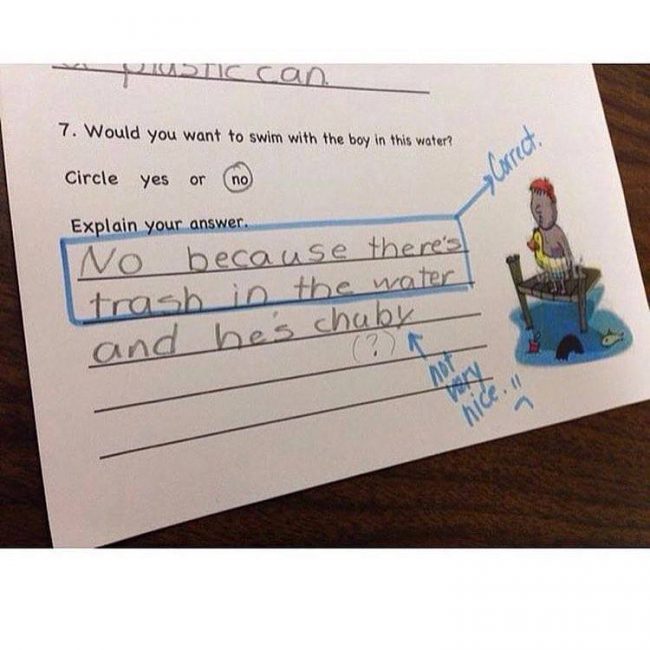 a plastic can
7. Would you want to swim with the boy in this water?
Circle yes or no
Correct.
Explain your answer.
No because there's
trash in the water
and he's chuby
(?)
not
very
nice.